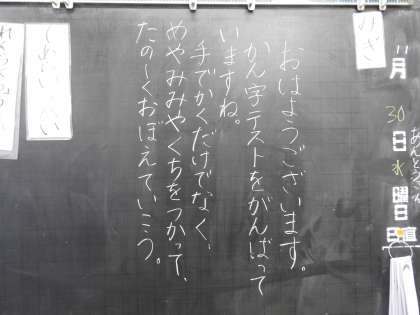 11月
30日
水曜日
日直
めあて
おはようございます。
かん字テストをがんばって
いますね。
手でかくだけでなく、
めやみみやくちをつかって、
たのしくおぼえていこう。